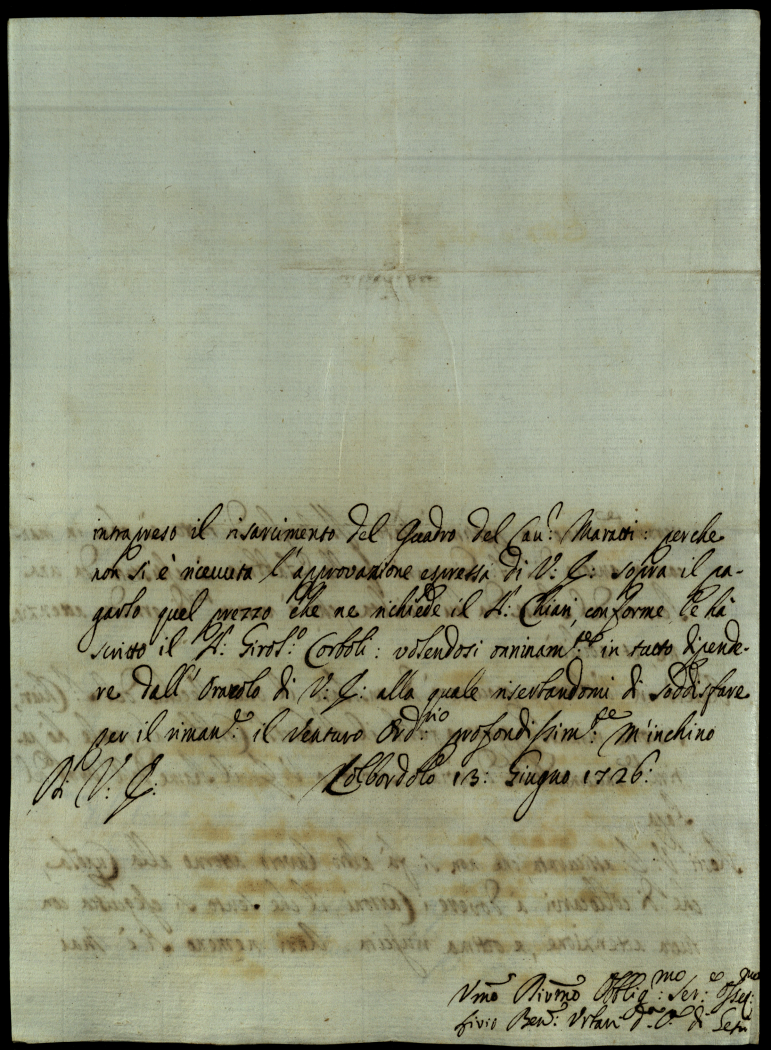 intrapreso il risarcimento del Quadro del Cau.r Maratti: perche
non si è riceuuta l'approvazione espressa di V: S: sopra il pa-
garlo quel prezzo che ne richiede il S.r Chiari, conforme le hà
scritto il S.r Girol.o Corboli: volendosi onninam.te in tutto dipende-
re dall' Oracolo di V: S: alla quale riserbandomi di soddisfare
per il riman.te il venturo Ord.rio profondissim.te m'inchino
Di V: S: Colbordolo 13: Giugno 1726:
Vmo Divmo Obblig.mo Ser.e
Ben.